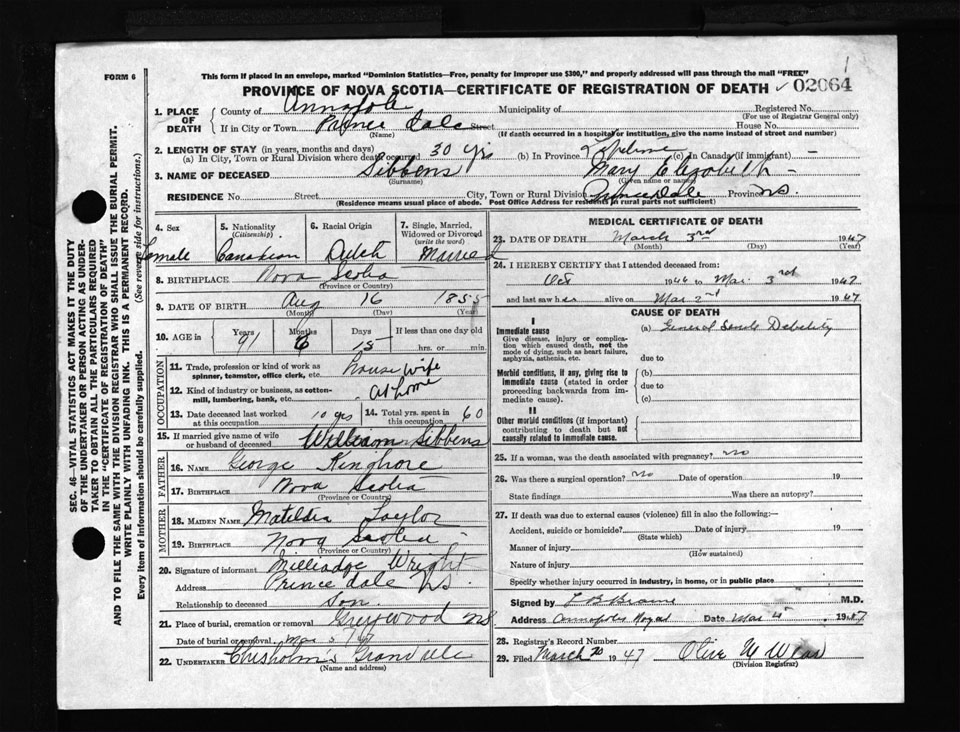 FORM 6
This form if placed in an envelope, marked "Dominion Statistics—Free, penalty for improper use $300," and properly addressed will pass through the mail "FREE"
PROVINCE OF NOVA SCOTIA—CERTIFICATE OF REGISTRATION OF DEATH 02064
1. PLACE OF DEATH County of Municipality of Registered No.
(For use of Registrar General only)
If in City or Town Prince Dale Street House No.
(Name) (If death occurred in a hospital or institution, give the name instead of street and number)
2. LENGTH OF STAY (in years, months and days)
(a) In City, Town or Rural Division where death occurred 30 yrs (b) In Province Lifetime (c) In Canada (if immigrant) —
3. NAME OF DECEASED Sibbens Mary Elezebeth
(Surname) (Given name or names)
RESIDENCE No. Street City, Town or Rural Division Princedale Province N.S.
(Residence means usual place of abode. Post Office Address for residents in rural parts not sufficient)
4. Sex 5. Nationality (Citizenship) 6. Racial Origin 7. Single, Married, Widowed or Divorced (write the word)
Female Canadian Dutch Married
8. BIRTHPLACE Nova Scotia
(Province or Country)
9. DATE OF BIRTH Aug 16 1855
(Month) (Day) (Year)
10. AGE in Years Months Days If less than one day old
91 6 15 hrs. or min.
OCCUPATION
11. Trade, profession or kind of work as spinner, teamster, office clerk, etc. house wife
12. Kind of industry or business, as cotton-mill, lumbering, bank, etc. at home
13. Date deceased last worked at this occupation 10 yrs 14. Total yrs. spent in this occupation 60
15. If married give name of wife or husband of deceased William Sibbens
FATHER
16. NAME George
17. BIRTHPLACE Nova Scotia
(Province or Country)
MOTHER
18. MAIDEN NAME Matilda Taylor
19. BIRTHPLACE Nova Scotia
(Province or Country)
20. Signature of informant Milliadge Wright
Address Prince dale N.S.
Relationship to deceased Son
21. Place of burial, cremation or removal Greywood N.S.
Date of burial or removal Mar 5/47
22. UNDERTAKER Chisholm's Granville
(Name and address)
MEDICAL CERTIFICATE OF DEATH
23. DATE OF DEATH March 3rd 1947
(Month) (Day) (Year)
24. I HEREBY CERTIFY that I attended deceased from:
Oct 1946 to Mar. 3rd 1947
and last saw her alive on Mar 2nd 1947
CAUSE OF DEATH
I
Immediate cause (a) General Senile Debility
Give disease, injury or complication which caused death, not the mode of dying, such as heart failure, asphyxia, asthenia, etc. due to
Morbid conditions, if any, giving rise to immediate cause (stated in order proceeding backwards from immediate cause). (b)
due to
(c)
II
Other morbid conditions (if important) contributing to death but not causally related to immediate cause.
25. If a woman, was the death associated with pregnancy? no
26. Was there a surgical operation? no Date of operation 19
State findings Was there an autopsy?
27. If death was due to external causes (violence) fill in also the following:—
Accident, suicide or homicide? Date of injury 19
(State which)
Manner of injury
(How sustained)
Nature of injury
Specify whether injury occurred in industry, in home, or in public place
Signed by M.D.
Address Annapolis Royal Date Mar 4 1947
28. Registrar's Record Number
29. Filed March 20 1947 Olive M
(Division Registrar)
SEC. 46—VITAL STATISTICS ACT MAKES IT THE DUTY
OF THE UNDERTAKER OR PERSON ACTING AS UNDERTAKER
TO OBTAIN ALL THE PARTICULARS REQUIRED
IN THE "CERTIFICATE OF REGISTRATION OF DEATH"
AND TO FILE THE SAME WITH THE DIVISION REGISTRAR WHO SHALL ISSUE THE BURIAL PERMIT.
WRITE PLAINLY WITH UNFADING INK. THIS IS A PERMANENT RECORD.
Every item of information should be carefully supplied. (See reverse side for instructions.)